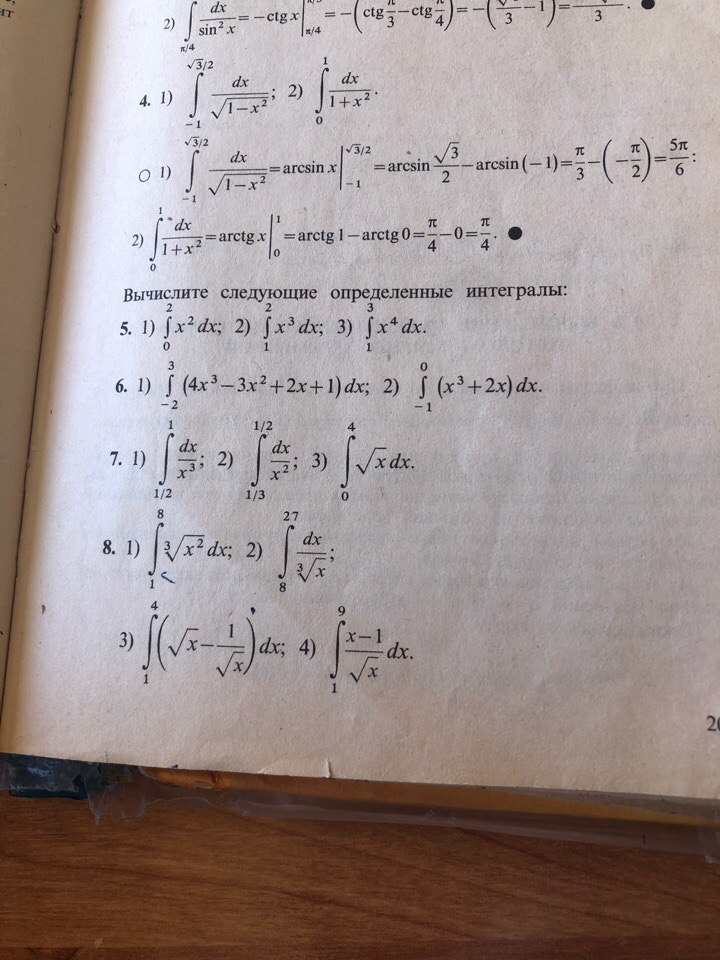 ит
2) ∫_{π/4} dx/sin² x = −ctg x |_{π/4} = −(ctg π/3 − ctg π/4) = −( /3 − 1) = /3 . ●
4. 1) ∫_{−1}^{√3/2} dx/√(1−x²); 2) ∫_0^1 dx/(1+x²).
○ 1) ∫_{−1}^{√3/2} dx/√(1−x²) = arcsin x |_{−1}^{√3/2} = arcsin √3/2 − arcsin (−1) = π/3 − (−π/2) = 5π/6 :
2) ∫_0^1 dx/(1+x²) = arctg x |_0^1 = arctg 1 − arctg 0 = π/4 − 0 = π/4. ●
Вычислите следующие определенные интегралы:
5. 1) ∫_0^2 x² dx; 2) ∫_1^2 x³ dx; 3) ∫_1^3 x⁴ dx.
6. 1) ∫_{−2}^3 (4x³−3x²+2x+1) dx; 2) ∫_{−1}^0 (x³+2x) dx.
7. 1) ∫_{1/2}^1 dx/x³; 2) ∫_{1/3}^{1/2} dx/x²; 3) ∫_0^4 √x dx.
8. 1) ∫_1^8 ∛(x²) dx; 2) ∫_8^{27} dx/∛x;
3) ∫_1^4 (√x − 1/√x) dx; 4) ∫_1^9 (x−1)/√x dx.
20